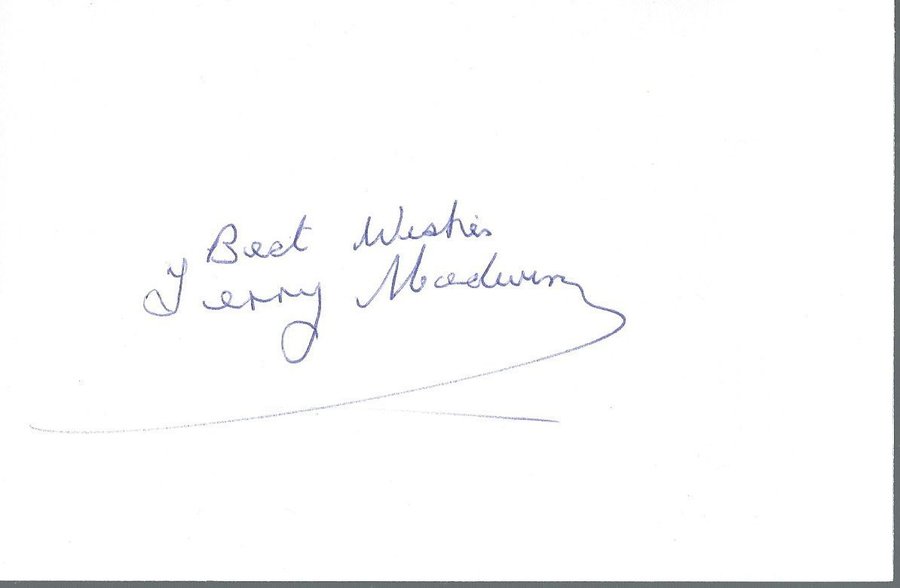 Best Wishes
Terry Medwin